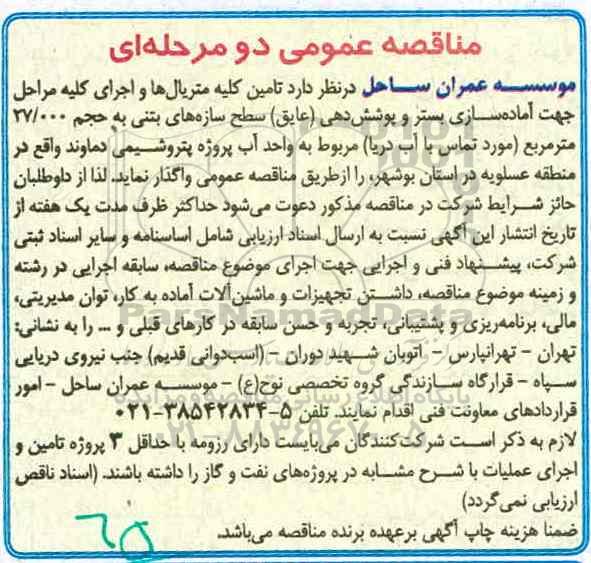 مناقصه عمومی دو مرحله‌ای
موسسه عمران ساحل درنظر دارد تامین کلیه متریال‌ها و اجرای کلیه مراحل
جهت آماده‌سازی بستر و پوشش‌دهی (عایق) سطح سازه‌های بتنی به حجم ۲۷/۰۰۰
مترمربع (مورد تماس با آب دریا) مربوط به واحد آب پروژه پتروشیمی دماوند واقع در
منطقه عسلویه در استان بوشهر، را ازطریق مناقصه عمومی واگذار نماید. لذا از داوطلبان
حائز شرایط شرکت در مناقصه مذکور دعوت می‌شود حداکثر ظرف مدت یک هفته از
تاریخ انتشار این آگهی نسبت به ارسال اسناد ارزیابی شامل اساسنامه و سایر اسناد ثبتی
شرکت، پیشنهاد فنی و اجرایی جهت اجرای موضوع مناقصه، سابقه اجرایی در رشته
و زمینه موضوع مناقصه، داشتن تجهیزات و ماشین‌آلات آماده به کار، توان مدیریتی،
ParsNamadData
مالی، برنامه‌ریزی و پشتیبانی، تجربه و حسن سابقه در کارهای قبلی و ... را به نشانی:
تهران - تهرانپارس - اتوبان شهید دوران - (اسب‌دوانی قدیم) جنب نیروی دریایی
سپاه - قرارگاه سازندگی گروه تخصصی نوح(ع) - موسسه عمران ساحل - امور
پایگاه اطلاع رسانی مناقصه و مزایده
قراردادهای معاونت فنی اقدام نمایند. تلفن ۵-۳۸۵۴۲۸۳۴-۰۲۱
۰۲۱-۸۸۳۴۹۶۷۰-۵
لازم به ذکر است شرکت‌کنندگان می‌بایست دارای رزومه با حداقل ۳ پروژه تامین و
اجرای عملیات با شرح مشابه در پروژه‌های نفت و گاز را داشته باشند. (اسناد ناقص
ارزیابی نمی‌گردد)
ضمنا هزینه چاپ آگهی برعهده برنده مناقصه می‌باشد.